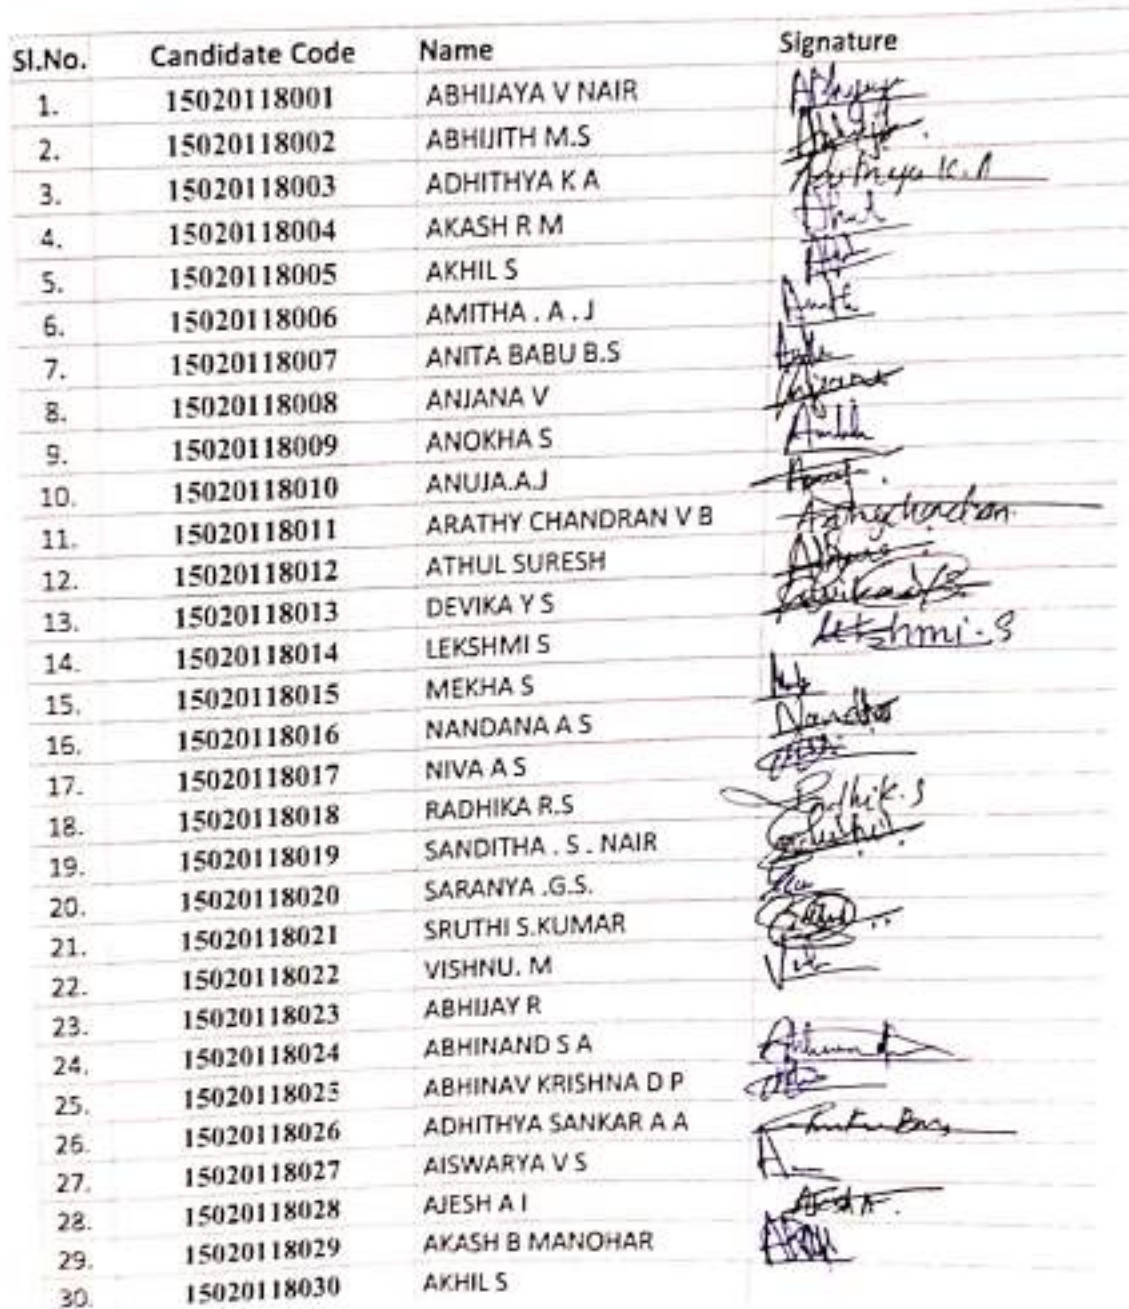 Sl.No. Candidate Code Name Signature
1. 15020118001 ABHIJAYA V NAIR
2. 15020118002 ABHIJITH M.S
3. 15020118003 ADHITHYA K A Adithya K.A
4. 15020118004 AKASH R M
5. 15020118005 AKHIL S
6. 15020118006 AMITHA . A . J
7. 15020118007 ANITA BABU B.S
8. 15020118008 ANJANA V
9. 15020118009 ANOKHA S
10. 15020118010 ANUJA.A.J
11. 15020118011 ARATHY CHANDRAN V B
12. 15020118012 ATHUL SURESH
13. 15020118013 DEVIKA Y S
14. 15020118014 LEKSHMI S Lekshmi.S
15. 15020118015 MEKHA S
16. 15020118016 NANDANA A S
17. 15020118017 NIVA A S
18. 15020118018 RADHIKA R.S
19. 15020118019 SANDITHA . S . NAIR
20. 15020118020 SARANYA .G.S.
21. 15020118021 SRUTHI S.KUMAR
22. 15020118022 VISHNU. M
23. 15020118023 ABHIJAY R
24. 15020118024 ABHINAND S A
25. 15020118025 ABHINAV KRISHNA D P
26. 15020118026 ADHITHYA SANKAR A A
27. 15020118027 AISWARYA V S
28. 15020118028 AJESH A I
29. 15020118029 AKASH B MANOHAR
30. 15020118030 AKHIL S